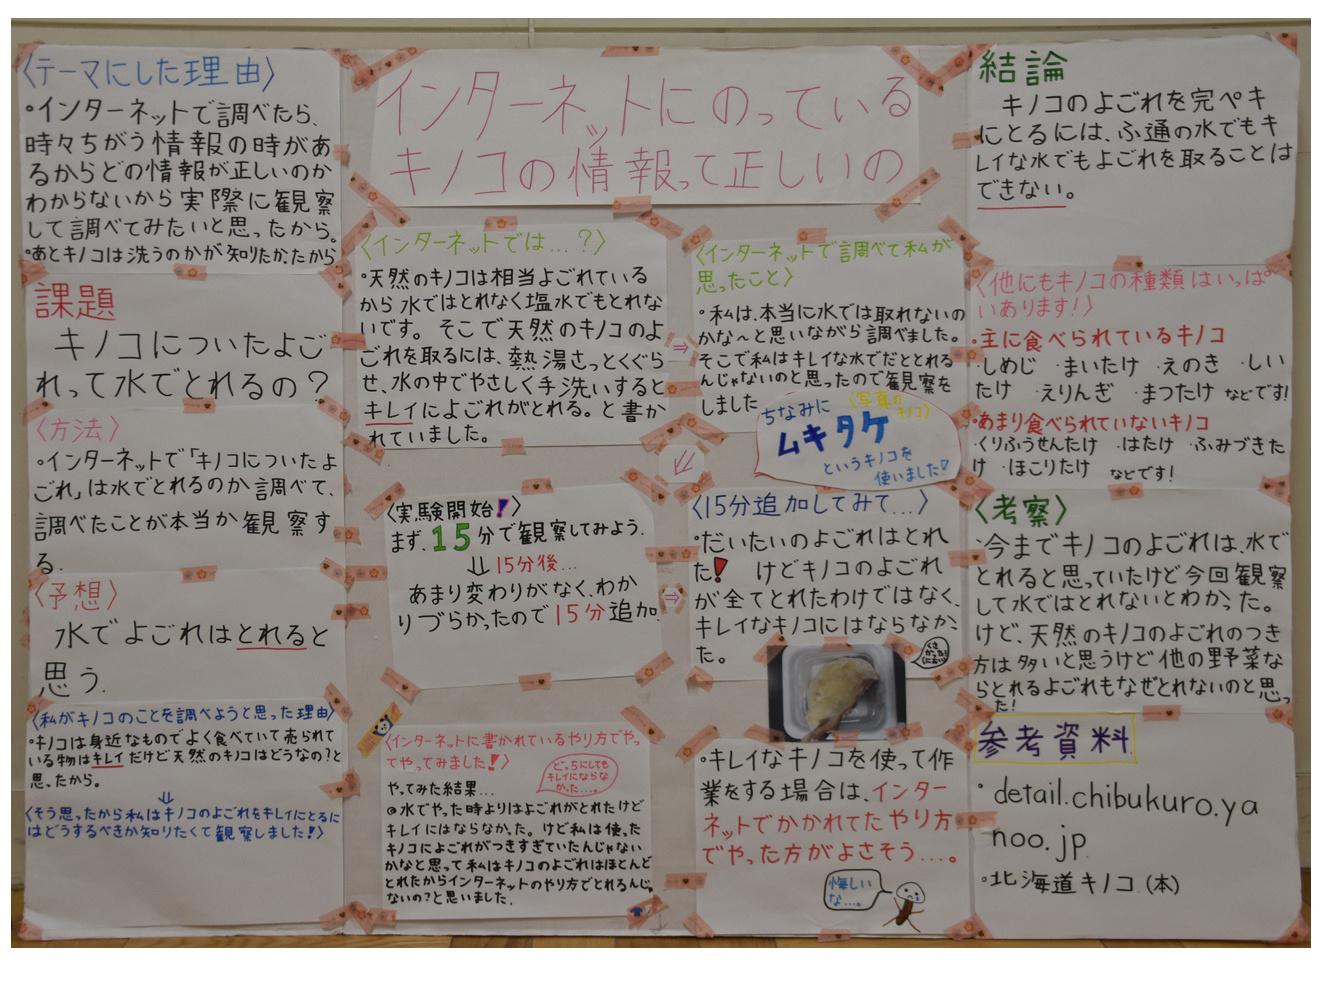 インターネットにのっている
キノコの情報って正しいの
〈テーマにした理由〉
・インターネットで調べたら、
時々ちがう情報の時があ
るからどの情報が正しいのか
わからないから実際に観察
して調べてみたいと思ったから。
・あとキノコは洗うのかが知りたかったから
課題
キノコについたよご
れって水でとれるの？
〈方法〉
・インターネットで「キノコについたよ
ごれ」は水でとれるのか調べて、
調べたことが本当か観察す
る.
〈予想〉
水でよごれはとれると
思う.
〈私がキノコのことを調べようと思った理由〉
・キノコは身近なものでよく食べていて売られて
いる物はキレイだけど天然のキノコはどうなの？と
思ったから。
⇓
〈そう思ったから私はキノコのよごれをキレイにとるに
はどうするべきか知りたくて観察しました！〉
〈インターネットでは…？〉
・天然のキノコは相当よごれている
から水ではとれなく塩水でもとれな
いです。そこで天然のキノコのよ
ごれを取るには、熱湯さっとくぐら
せ、水の中でやさしく手洗いすると
キレイによごれがとれる。と書か
れていました。
⇒
〈インターネットで調べて私が
思ったこと〉
・私は、本当に水では取れないの
かな〜と思いながら調べました。
そこで私はキレイな水でだととれる
んじゃないのと思ったので観察を
しました
ちなみに
〈写真のキノコ〉
ムキタケ
というキノコを
使いました♡
〈実験開始！〉
まず、15分で観察してみよう.
⇓15分後…
あまり変わりがなく、わか
りづらかったので15分追加.
⇒
〈15分追加してみて…〉
・だいたいのよごれはとれ
た！けどキノコのよごれ
が全てとれたわけではなく、
キレイなキノコにはならなかっ
た。
くさかった(におい)
〈インターネットに書かれているやり方でやっ
てやってみました！〉
どっちにしても
キレイにならな
かった…。
やってみた結果…
◎水でやった時よりはよごれがとれたけど
キレイにはならなかった。けど私は使った
キノコによごれがつきすぎていたんじゃない
かなと思って私はキノコのよごれはほとんど
とれたからインターネットのやり方でとれるんじゃ
ないの？と思いました.
・キレイなキノコを使って作
業をする場合は、インター
ネットでかかれてたやり方
でやった方がよさそう…。
悔しい
な…。
結論
キノコのよごれを完ペキ
にとるには、ふ通の水でもキ
レイな水でもよごれを取ることは
できない。
〈他にもキノコの種類はいっぱ
いあります！〉
・主に食べられているキノコ
・しめじ ・まいたけ ・えのき ・しい
たけ ・えりんぎ ・まつたけ などです!
・あまり食べられていないキノコ
・くりふうせんたけ ・はたけ ・ふみづきた
け ・ほこりたけ などです!
〈考察〉
・今までキノコのよごれは、水で
とれると思っていたけど今回観察
して水ではとれないとわかった。
けど、天然のキノコのよごれのつき
方は多いと思うけど他の野菜な
らとれるよごれもなぜとれないのと思っ
た!
参考資料
・detail.chibukuro.ya
noo.jp
・北海道キノコ(本)